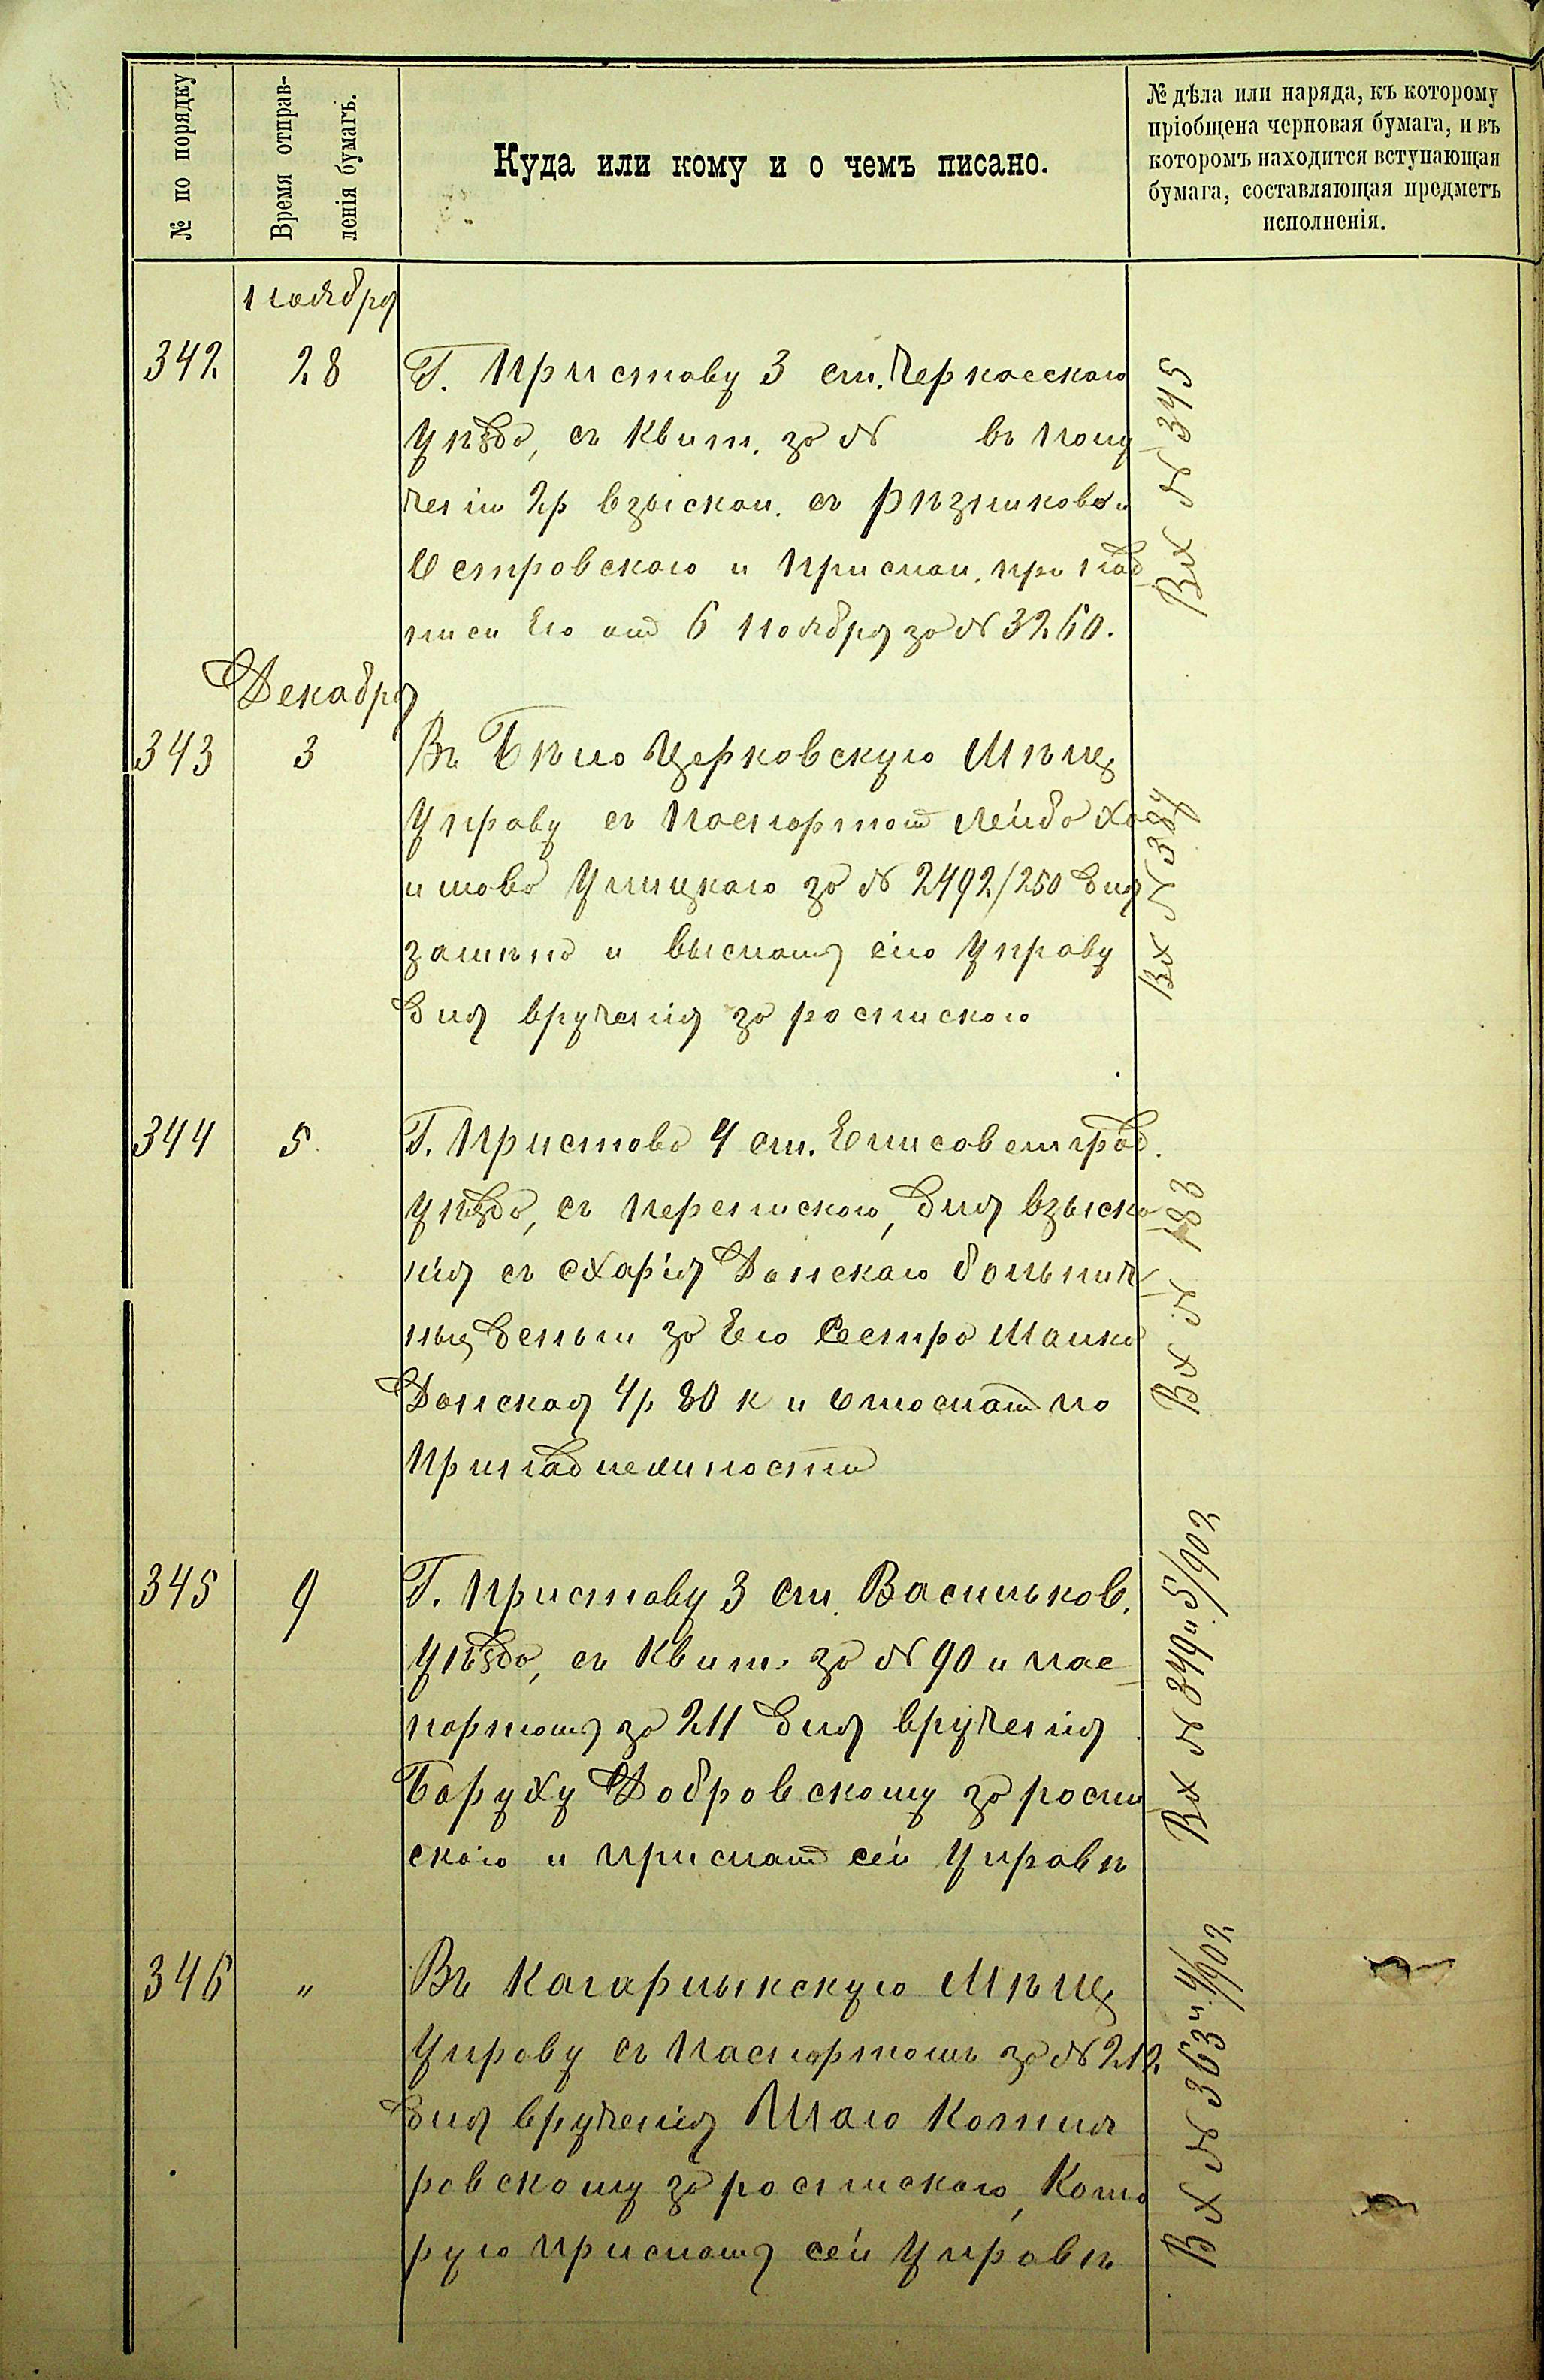 № по порядку
Время отправ-
ленія бумагъ.
Куда или кому и о чемъ писано.
№ дѣла или наряда, къ которому
пріобщена черновая бумага, и въ
которомъ находится вступающая
бумага, составляющая предметъ
исполненія.
Ноября
342 28 Г. Приставу 3 ст. Черкасскаго
Уѣзда, съ Квит. за № въ полу
ченіи 2р взыскан. съ Рѣзникова и
Островскаго и прислан. при над
писи Его отъ 6 Ноября за № 3260.
Вх № 345
Декабря
343 3 Въ Бѣло Церковскую Мѣщ
Управу съ Паспортом Лейба Ха
имова за № 2492/250 для
и выслать сію Управу
для вручения за роспискою
Вх №
344 5 Г. Пристава 4 ст. Елисаветград.
Уѣзда, съ Перепискою, для взыска
нія съ Схарія Донскаго больнич
ныхъ деньги за Его Сестра Малка
Донская 4р 80 к и отослать по
Принадлежности
Вх № 183
345 9 Г. Приставу 3 ст. Васильков.
Уѣзда, съ Квит. за № 90 и пас
портомъ за 211 для врученія
Баруху Добровскому за роспи
скою и прислать сей Управѣ
Вх № 349 и 5/902
346 " Въ Кагарлыкскую Мѣщ
Управу съ Паспортомъ за № 212
для врученія Шаю Котля
ровскому за роспискою, Кото
рую прислать сей Управѣ
Вх № 363 и 4/902